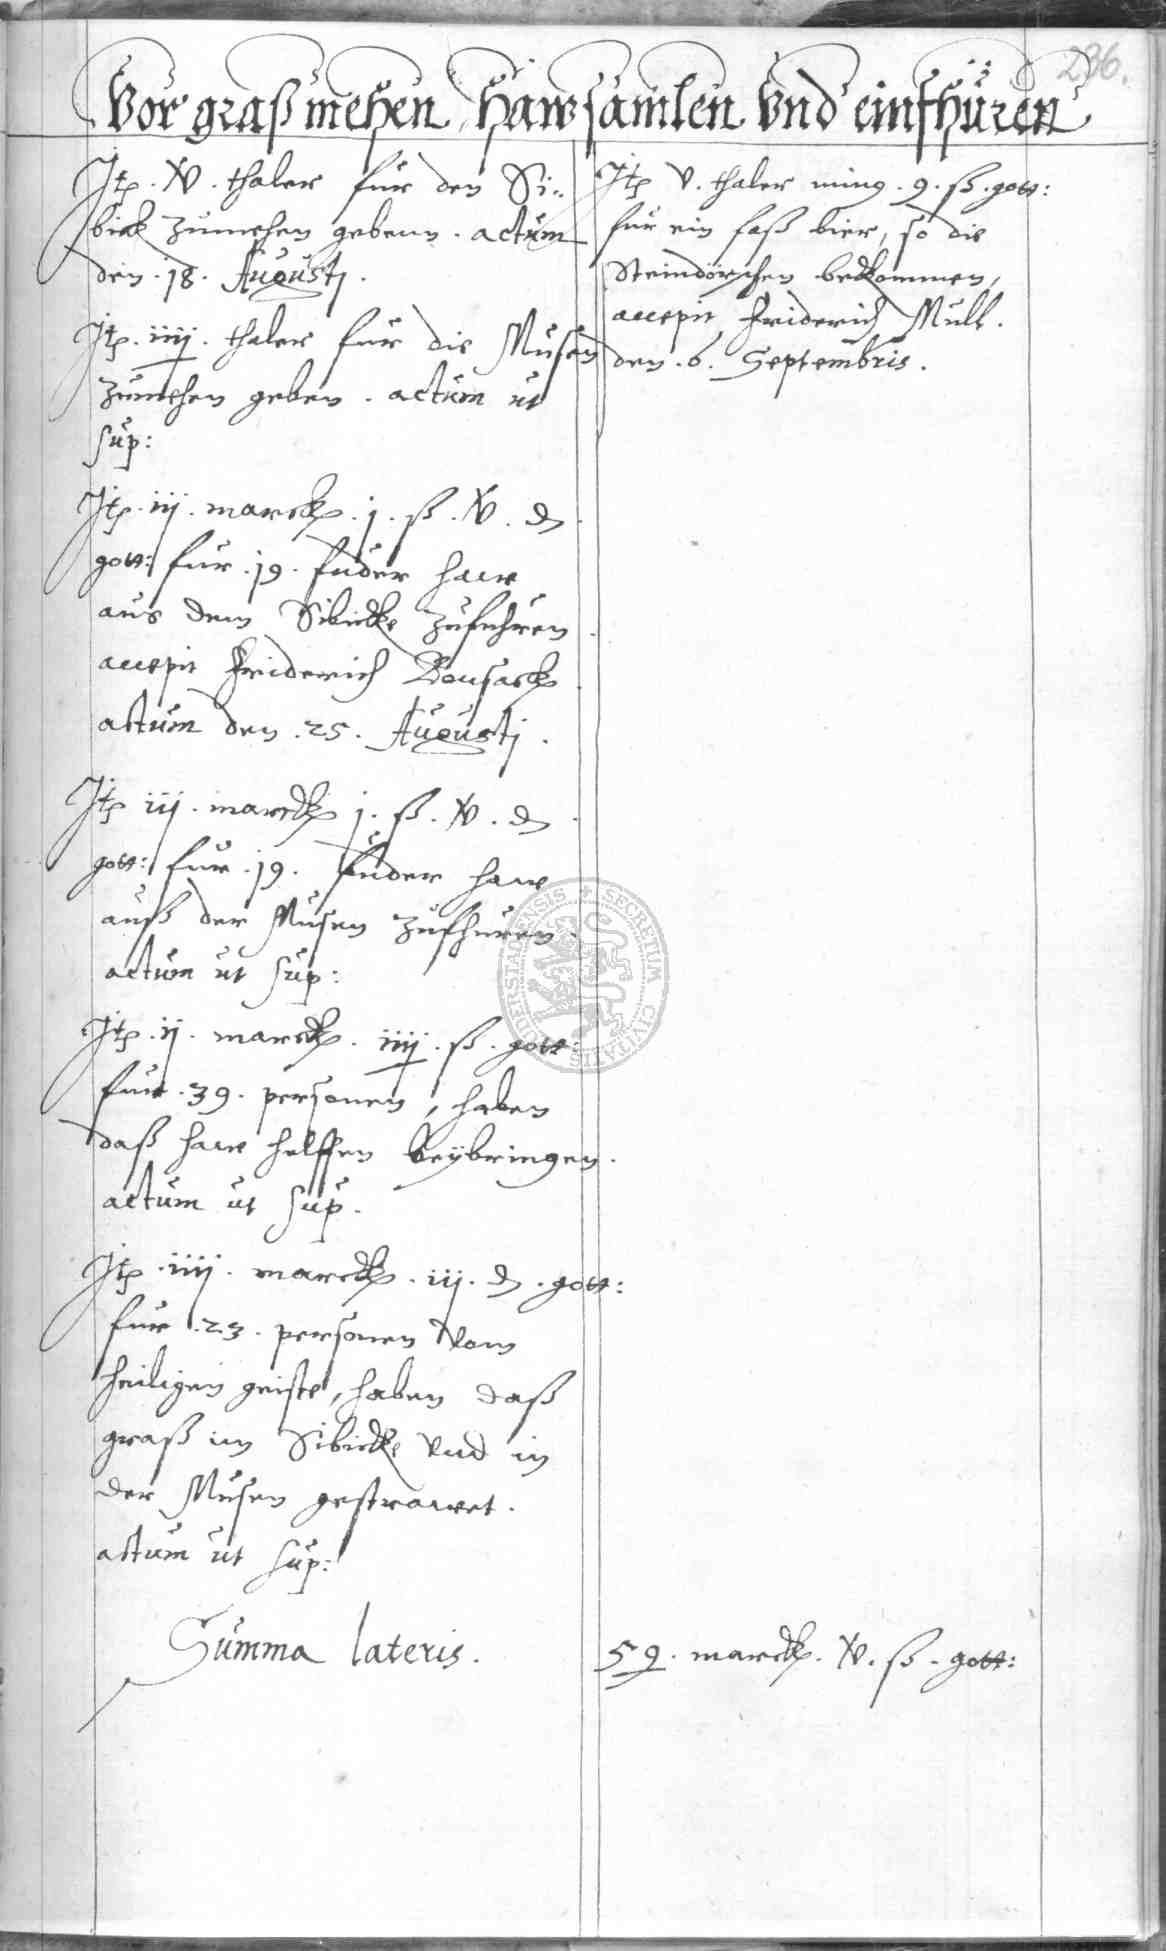 236.
Vor graß mehen Haw samlen Vnd einfhüren
Jtem . xv . thaler für den Si=
bick zumehen gebenn . actum
den . 18 . Augustj .
Jtem . iiij . thaler für die Musen
zumehen geben . actum ut
sup:
Jtem . iij . marck . j . ß . xv . d
gott: für . 19 . fuder haw
aus dem Sibicke zufuhren
accepit Friderich
actum den . 25 . Augustj .
Jtem iij . marck j . ß . xv . d
gott: für . 19 . fuder haw
auß der Musen zufhuren .
actum ut sup:
Jtem . ij . marck . iiij . ß . gott:
für . 39 . personen , haben
daß haw helffen beybringen .
actum ut sup .
Jtem . iiij . marck . iij . d . gott:
für . 23 . personen vom
heiligen geiste, haben daß
graß im Sibicke vnd in
der Musen gestrawet .
actum ut sup:
Summa lateris .
Jtem v . thaler ming . 9 . ß . gott:
für ein faß bier, so die
Steindörschen bekommen,
accepit Friderich Mull .
den . 6 . Septembris .
59 . marck . xv . ß . gott:
SECRETUM CIVITATIS DUDERSTADENSIS